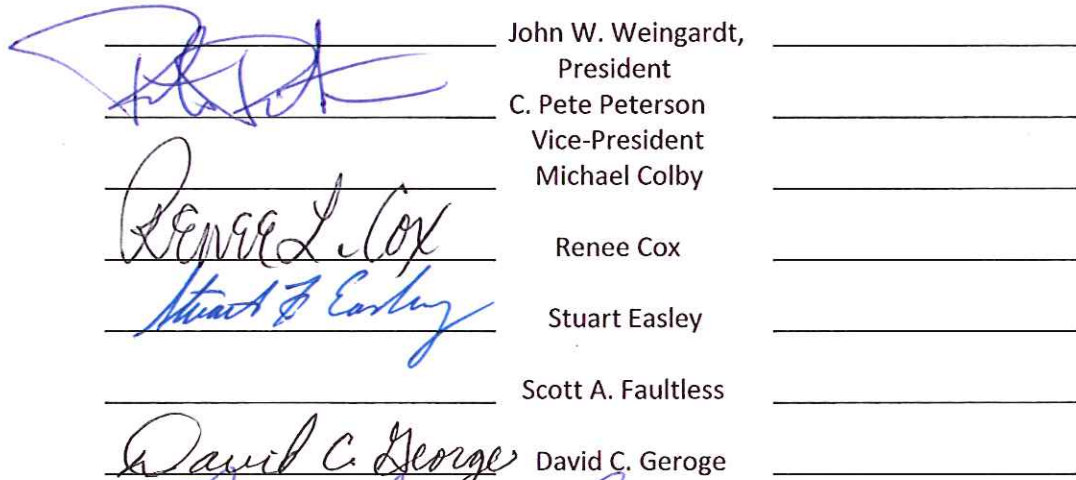 John W. Weingardt,
President
C. Pete Peterson
Vice-President
Michael Colby
Renee L. Cox Renee Cox
Stuart F Easley Stuart Easley
Scott A. Faultless
David C. George David C. Geroge